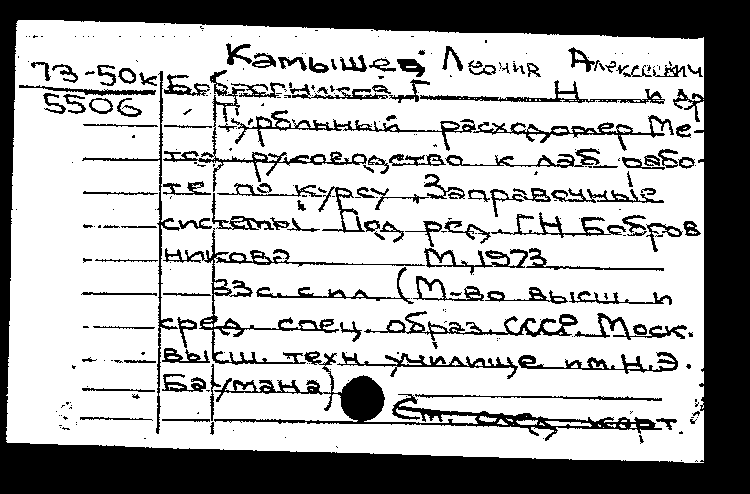 Камышев Леонид Алексеевич
73-50к Бобровникова, Г Н и др
5506 Турбинный расходомер Ме-
тод. руководство к лаб рабо-
те по курсу „Заправочные
системы. Под ред. Г.Н Бобров
никова М., 1973
33с. с ил. (М-во высш. и
сред. спец. образ. СССР. Моск.
высш. техн. училище им. Н.Э.
Баумана)
См. след. карт.